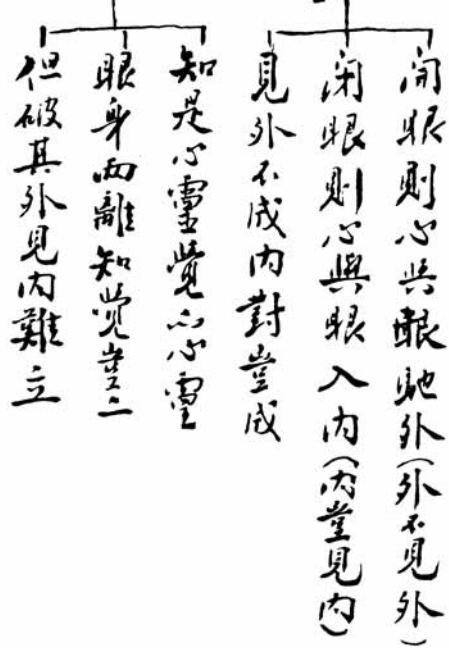 開眼則心與眼馳外(外不見外)
閉眼則心與眼入内(内豈見内)
見外不成内對豈成
知是心靈覺亦心靈
眼身兩離知覺豈二
但破其外見内難立